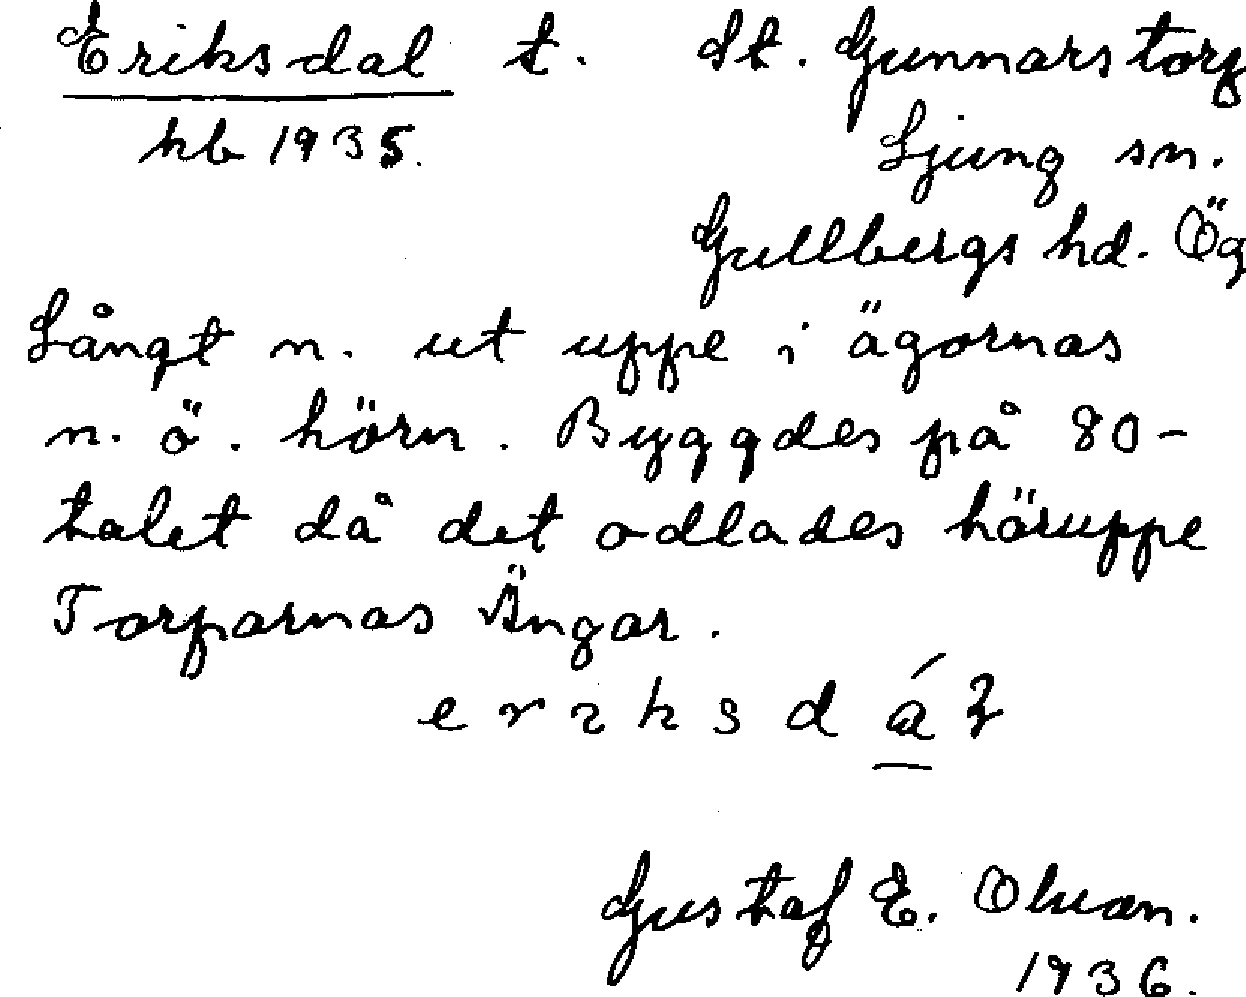 Eriksdal t. St. Gunnarstorp
kb 1935. Ljung sn.
Gullbergs hd. Ög
Långt n. ut uppe i ägornas
n. ö. hörn. Byggdes på 80-
talet då det odlades häruppe
Torparnas Ängar.
Gustaf E.
1936.